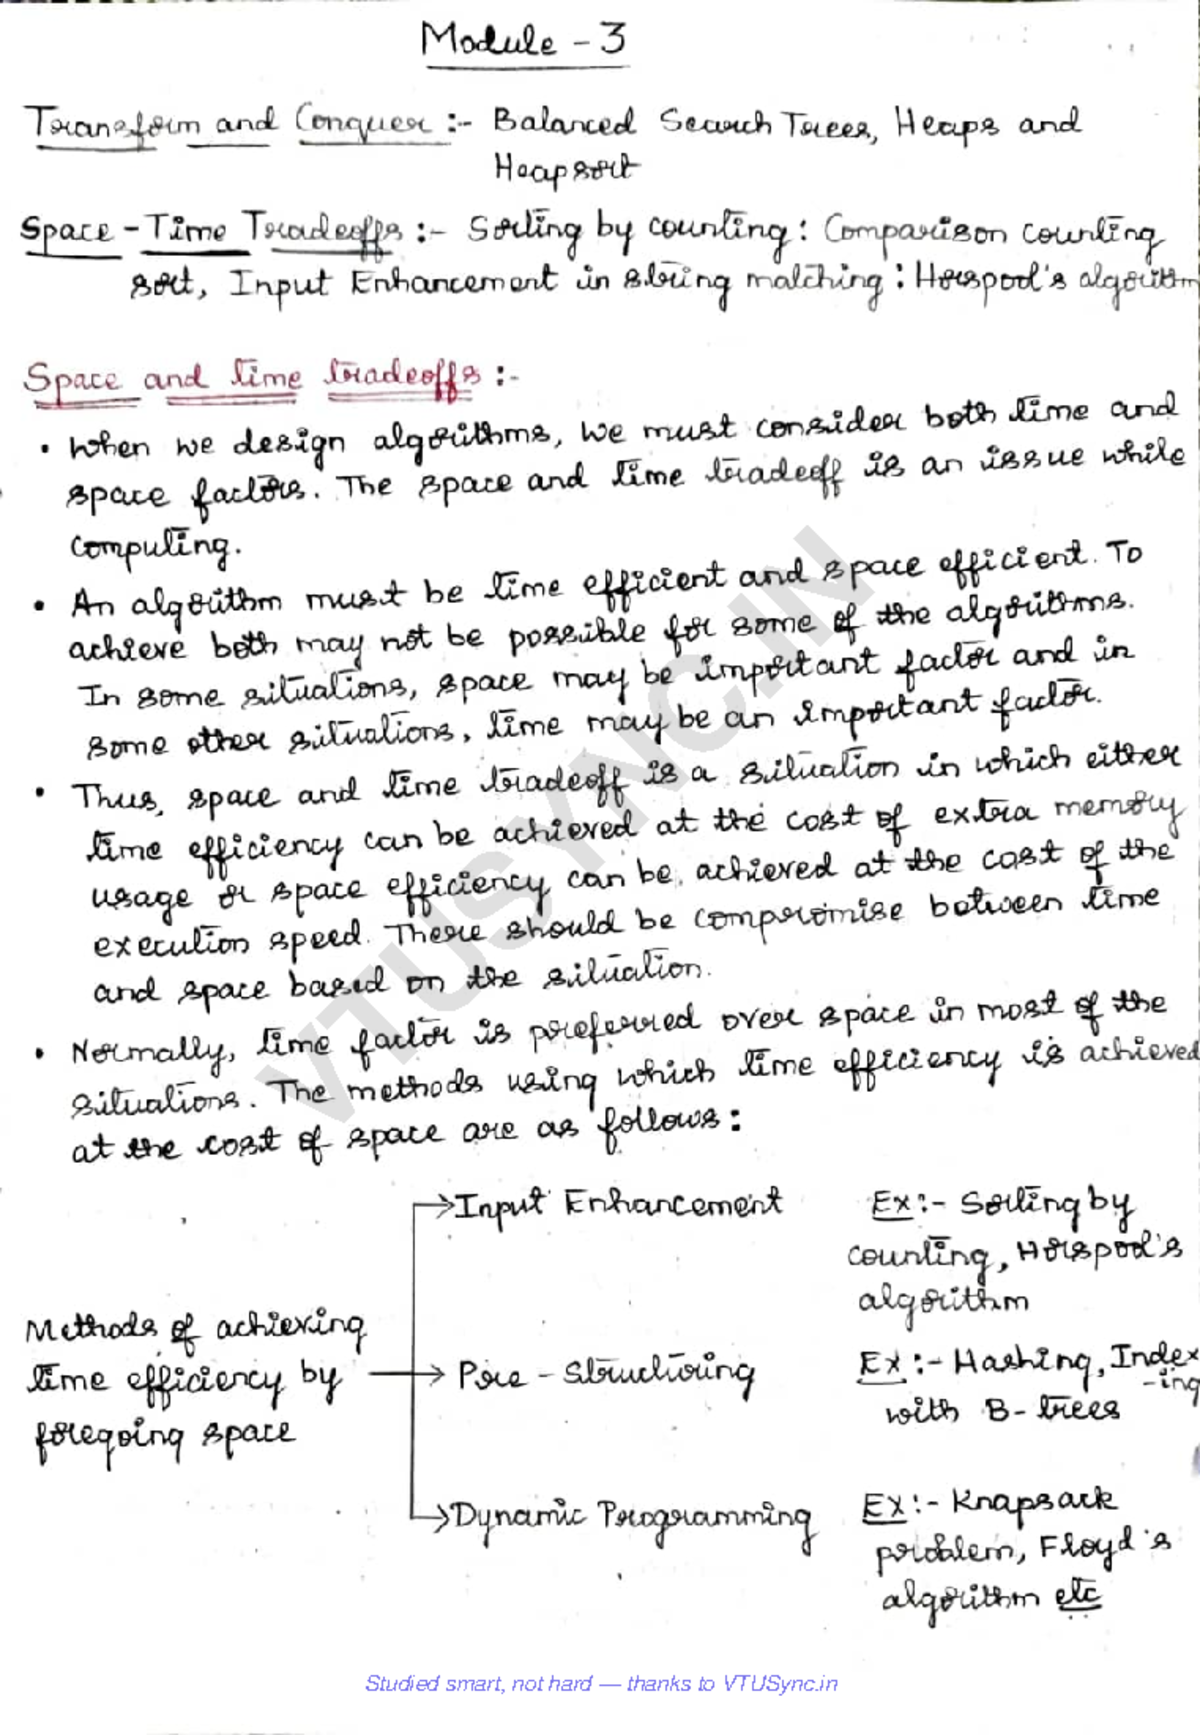 Module - 3
Transform and Conquer :- Balanced Search Trees, Heaps and
Heapsort
Space - Time Tradeoffs :- Sorting by counting : Comparison counting
sort, Input Enhancement in string matching : Horspool's algorithm
Space and time tradeoffs :-
• When we design algorithms, we must consider both time and
space factors. The space and time tradeoff is an issue while
computing.
• An algorithm must be time efficient and space efficient. To
achieve both may not be possible for some of the algorithms.
In some situations, space may be important factor and in
some other situations, time may be an important factor.
• Thus, space and time tradeoff is a situation in which either
time efficiency can be achieved at the cost of extra memory
usage or space efficiency can be achieved at the cost of the
execution speed. There should be compromise between time
and space based on the situation.
• Normally, time factor is preferred over space in most of the
situations. The methods using which time efficiency is achieved
at the cost of space are as follows :
Methods of achieving
time efficiency by
foregoing space
Input Enhancement
Ex :- Sorting by
counting, Horspool's
algorithm
Pre - Structuring
Ex :- Hashing, Index
-ing
with B- trees
Dynamic Programming
Ex :- Knapsack
problem, Floyd's
algorithm etc
VTUSYNC.IN
Studied smart, not hard — thanks to VTUSync.in